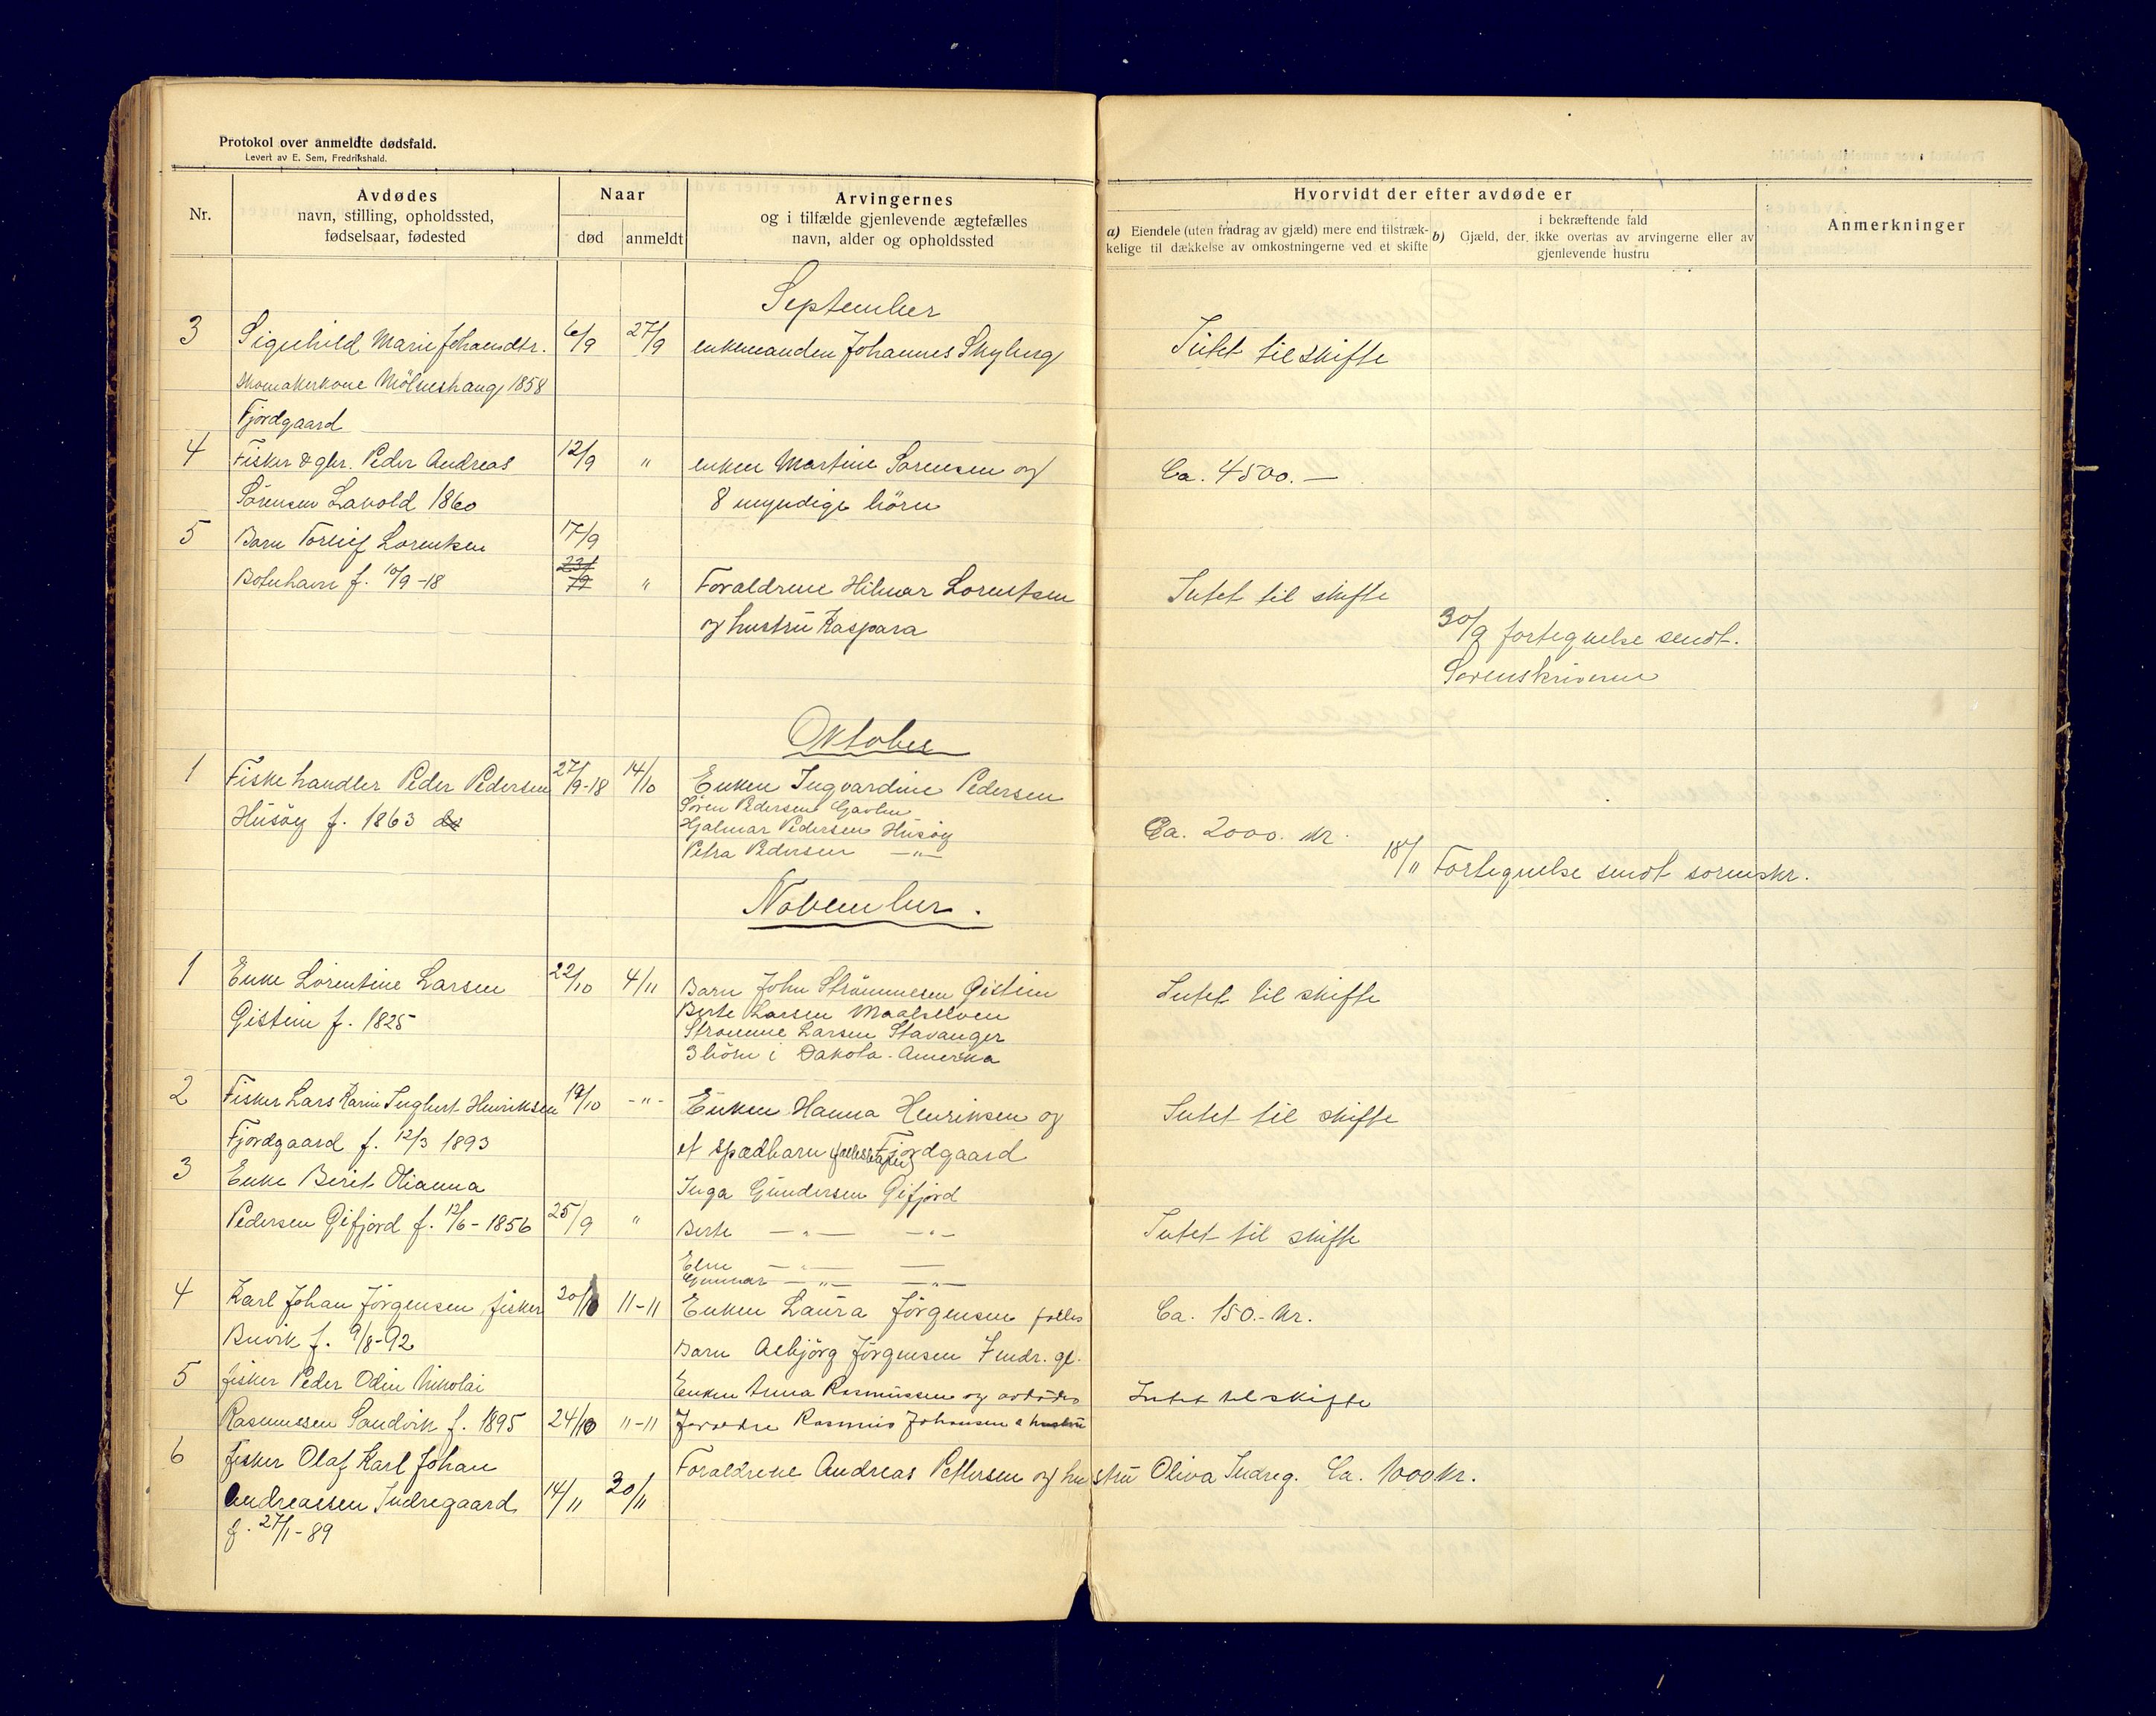 Protokol over anmeldte dødsfald.
Levert av E. Sem, Fredrikshald.
Nr.
Avdødes
navn, stilling, opholdssted,
fødselsaar, fødested
Naar
død
anmeldt
Arvingernes
og i tilfælde gjenlevende ægtefælles
navn, alder og opholdssted
Hvorvidt der efter avdøde er
a) Eiendele (uten fradrag av gjæld) mere end tilstræk-
kelige til dækkelse av omkostningerne ved et skifte
b) i bekræftende fald
Gjæld, der ikke overtas av arvingerne eller av
gjenlevende hustru
Anmerkninger
September
3 Marie 6/9 27/9 enkemanden Johannes Intet til skifte
skomakerkone 1858
Fjordgaard
4 Fisker & gbr. Peder Andreas 12/9 " enken Martine Sørensen og Ca. 4500.—
Sørensen Lavold 1860 8 myndige börn
5 Barn Torleif Lorentsen 17/9
Botnhavn f. 10/9-18 23/9 " Foraldrene Hilmar Lorentsen Intet til skifte
og hustru Kaspara
30/9 fortegnelse sendt.
Sorenskriveren
Oktober
1 Fiskehandler Peder Pedersen 27/9-18 14/10 Enken Ingvardine Pedersen
Husöy f. 1863 Sören Pedersen
Hjalmar Pedersen Husöy Ca. 2000. kr.
Petra Pedersen —"—
18/11 Fortegnelse sendt sorenskr.
November.
1 Enke Lorentine Larsen 22/10 4/11 Barn John Strömmesen Gisteim Intet til skifte
Gisteim f. 1825 Berte Larsen Maalselven
Strømme Larsen Stavanger
3 börn i Dakota. Amerika
2 Fisker Lars Karin Ingbert Henriksen 19/10 -"- Enken Hanna Henriksen og Intet til skifte
Fjordgaard f. 12/3 1893 et spædbarn Fjordgaard
3 Enke Berit Olianna Inga Gundersen Gifjord
Pedersen Gifjord f. 12/6-1856 25/9 " Berte —"— —"— Intet til skifte
—"— —
Gunnar —"— —"—
4 Karl Johan Jörgensen fisker 20/10 11-11 Enken Laura Jörgensen fælles Ca. 150.- kr.
Buvik f. 9/8-92 Barn Asbjörg Jörgensen 7 mdr. gl.
5 fisker Peder Odin Nikolai Enken Anna Rasmussen og avdödes Intet til skifte
Rasmussen Sandvik f. 1895 24/10 11-11 foreldre Rasmus Johansen & hustru
6 fisker Olaf Karl Johan Foraldrene Andreas Pettersen og hustru Oliva Indreg. Ca. 1000 kr.
Andreassen Indregaard 14/11 20/11
f. 27/1-89